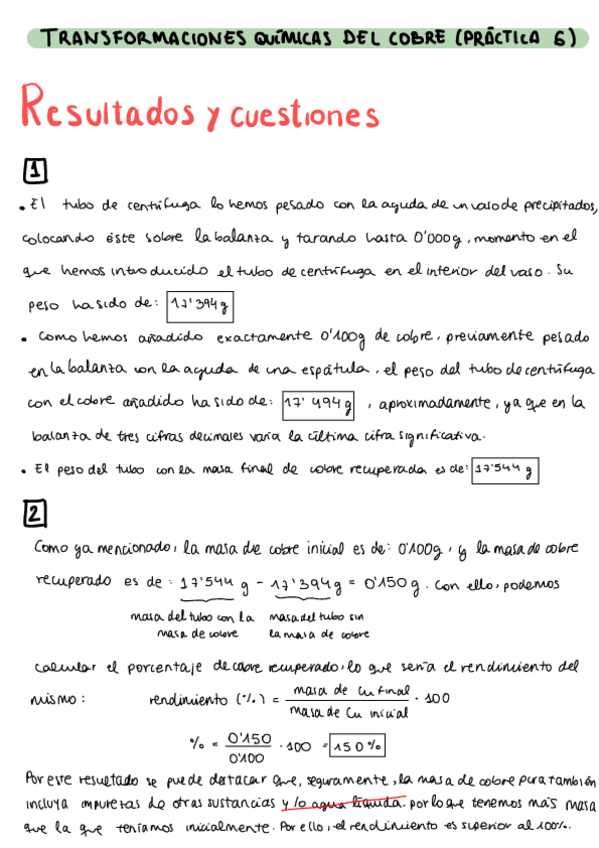 TRANSFORMACIONES QUÍMICAS DEL COBRE (PRÁCTICA 6)
Resultados y cuestiones
1
• El tubo de centrífuga lo hemos pesado con la ayuda de un vaso de precipitados,
colocando éste sobre la balanza y tarando hasta 0'000g, momento en el
que hemos introducido el tubo de centrífuga en el interior del vaso. Su
peso ha sido de: 17'394 g
• Como hemos añadido exactamente 0'100g de cobre, previamente pesado
en la balanza con la ayuda de una espátula, el peso del tubo de centrífuga
con el cobre añadido ha sido de: 17'494 g , aproximadamente, ya que en la
balanza de tres cifras decimales varía la última cifra significativa.
• El peso del tubo con la masa final de cobre recuperada es de: 17'544 g
2
Como ya mencionado, la masa de cobre inicial es de: 0'100g, y la masa de cobre
recuperado es de: 17'544 g - 17'394 g = 0'150 g. Con ello, podemos
masa del tubo con la masa del tubo sin
masa de cobre la masa de cobre
calcular el porcentaje de cobre recuperado, lo que sería el rendimiento del
mismo: rendimiento (%) = masa de Cu final / masa de Cu inicial · 100
% = 0'150 / 0'100 · 100 = 150%
Por este resultado se puede destacar que, seguramente, la masa de cobre pura también
incluya impurezas de otras sustancias y/o agua líquida. por lo que tenemos más masa
que la que teníamos inicialmente. Por ello, el rendimiento es superior al 100%.